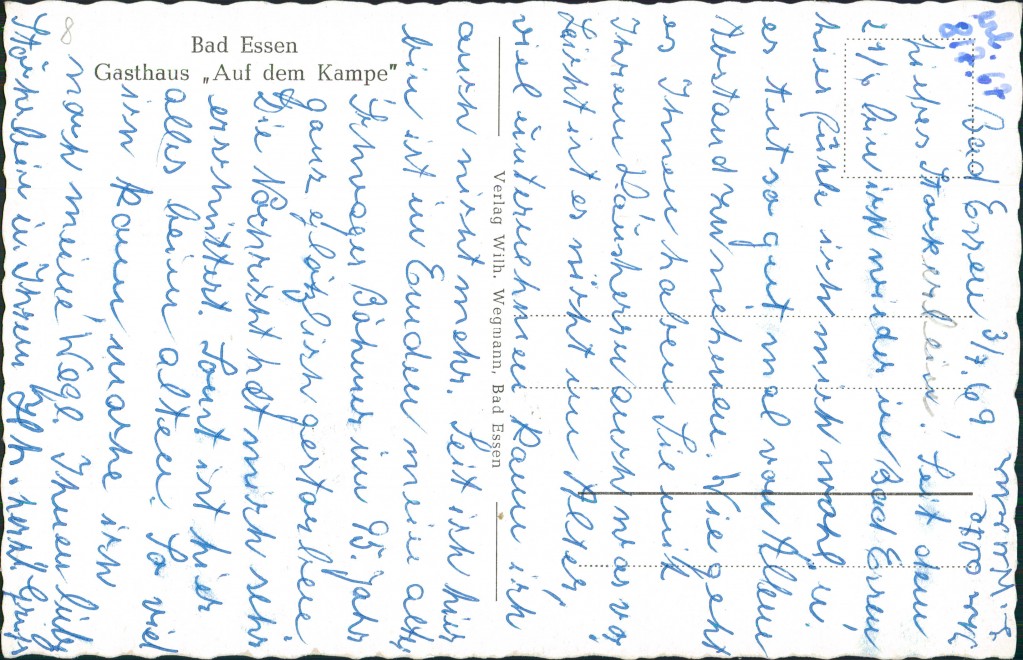 Bad Essen
Gasthaus „Auf dem Kampe"
Verlag Wilh. Wegmann, Bad Essen
8
Bad Essen 3/7.69
Liebes Stockerlein! Seit dem
27/6 bin ich wieder in Bad Essen
hier fühle ich mich wohl u.
es tut so gut mal von Allem
Abstand zu nehmen. Wie geht
es Ihnen haben Sie mit
Ihrem Häuschen auch was vor
Leicht ist es nicht im Alter,
viel unternehmen kann ich
auch nicht mehr. Seit ich hier
bin ist in Emden mein alter
Schwager Böhmer im 95. Jahr
ganz plötzlich gestorben
Die Nachricht hat mich sehr
erschüttert. Sonst ist hier
alles beim alten. So viel
ich kann mache ich
noch meine Wege. Ihnen liebes
in Ihrem herzl. Grüße